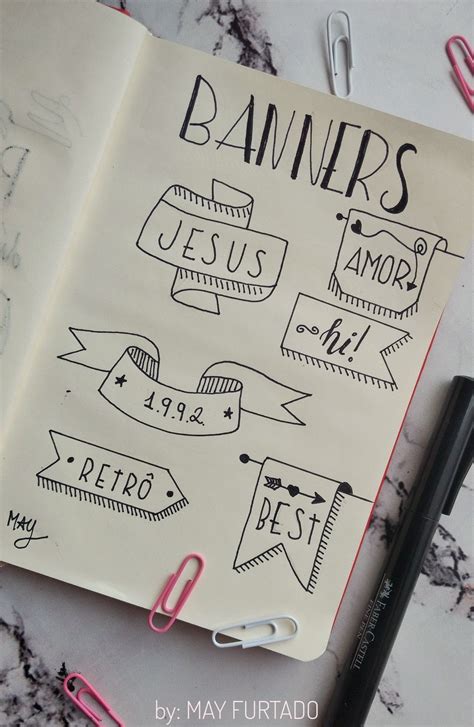 BANNERS
JESUS
AMOR
hi!
1.9.9.2.
RETRÔ
BEST
MAY
FABER-CASTELL
by: MAY FURTADO